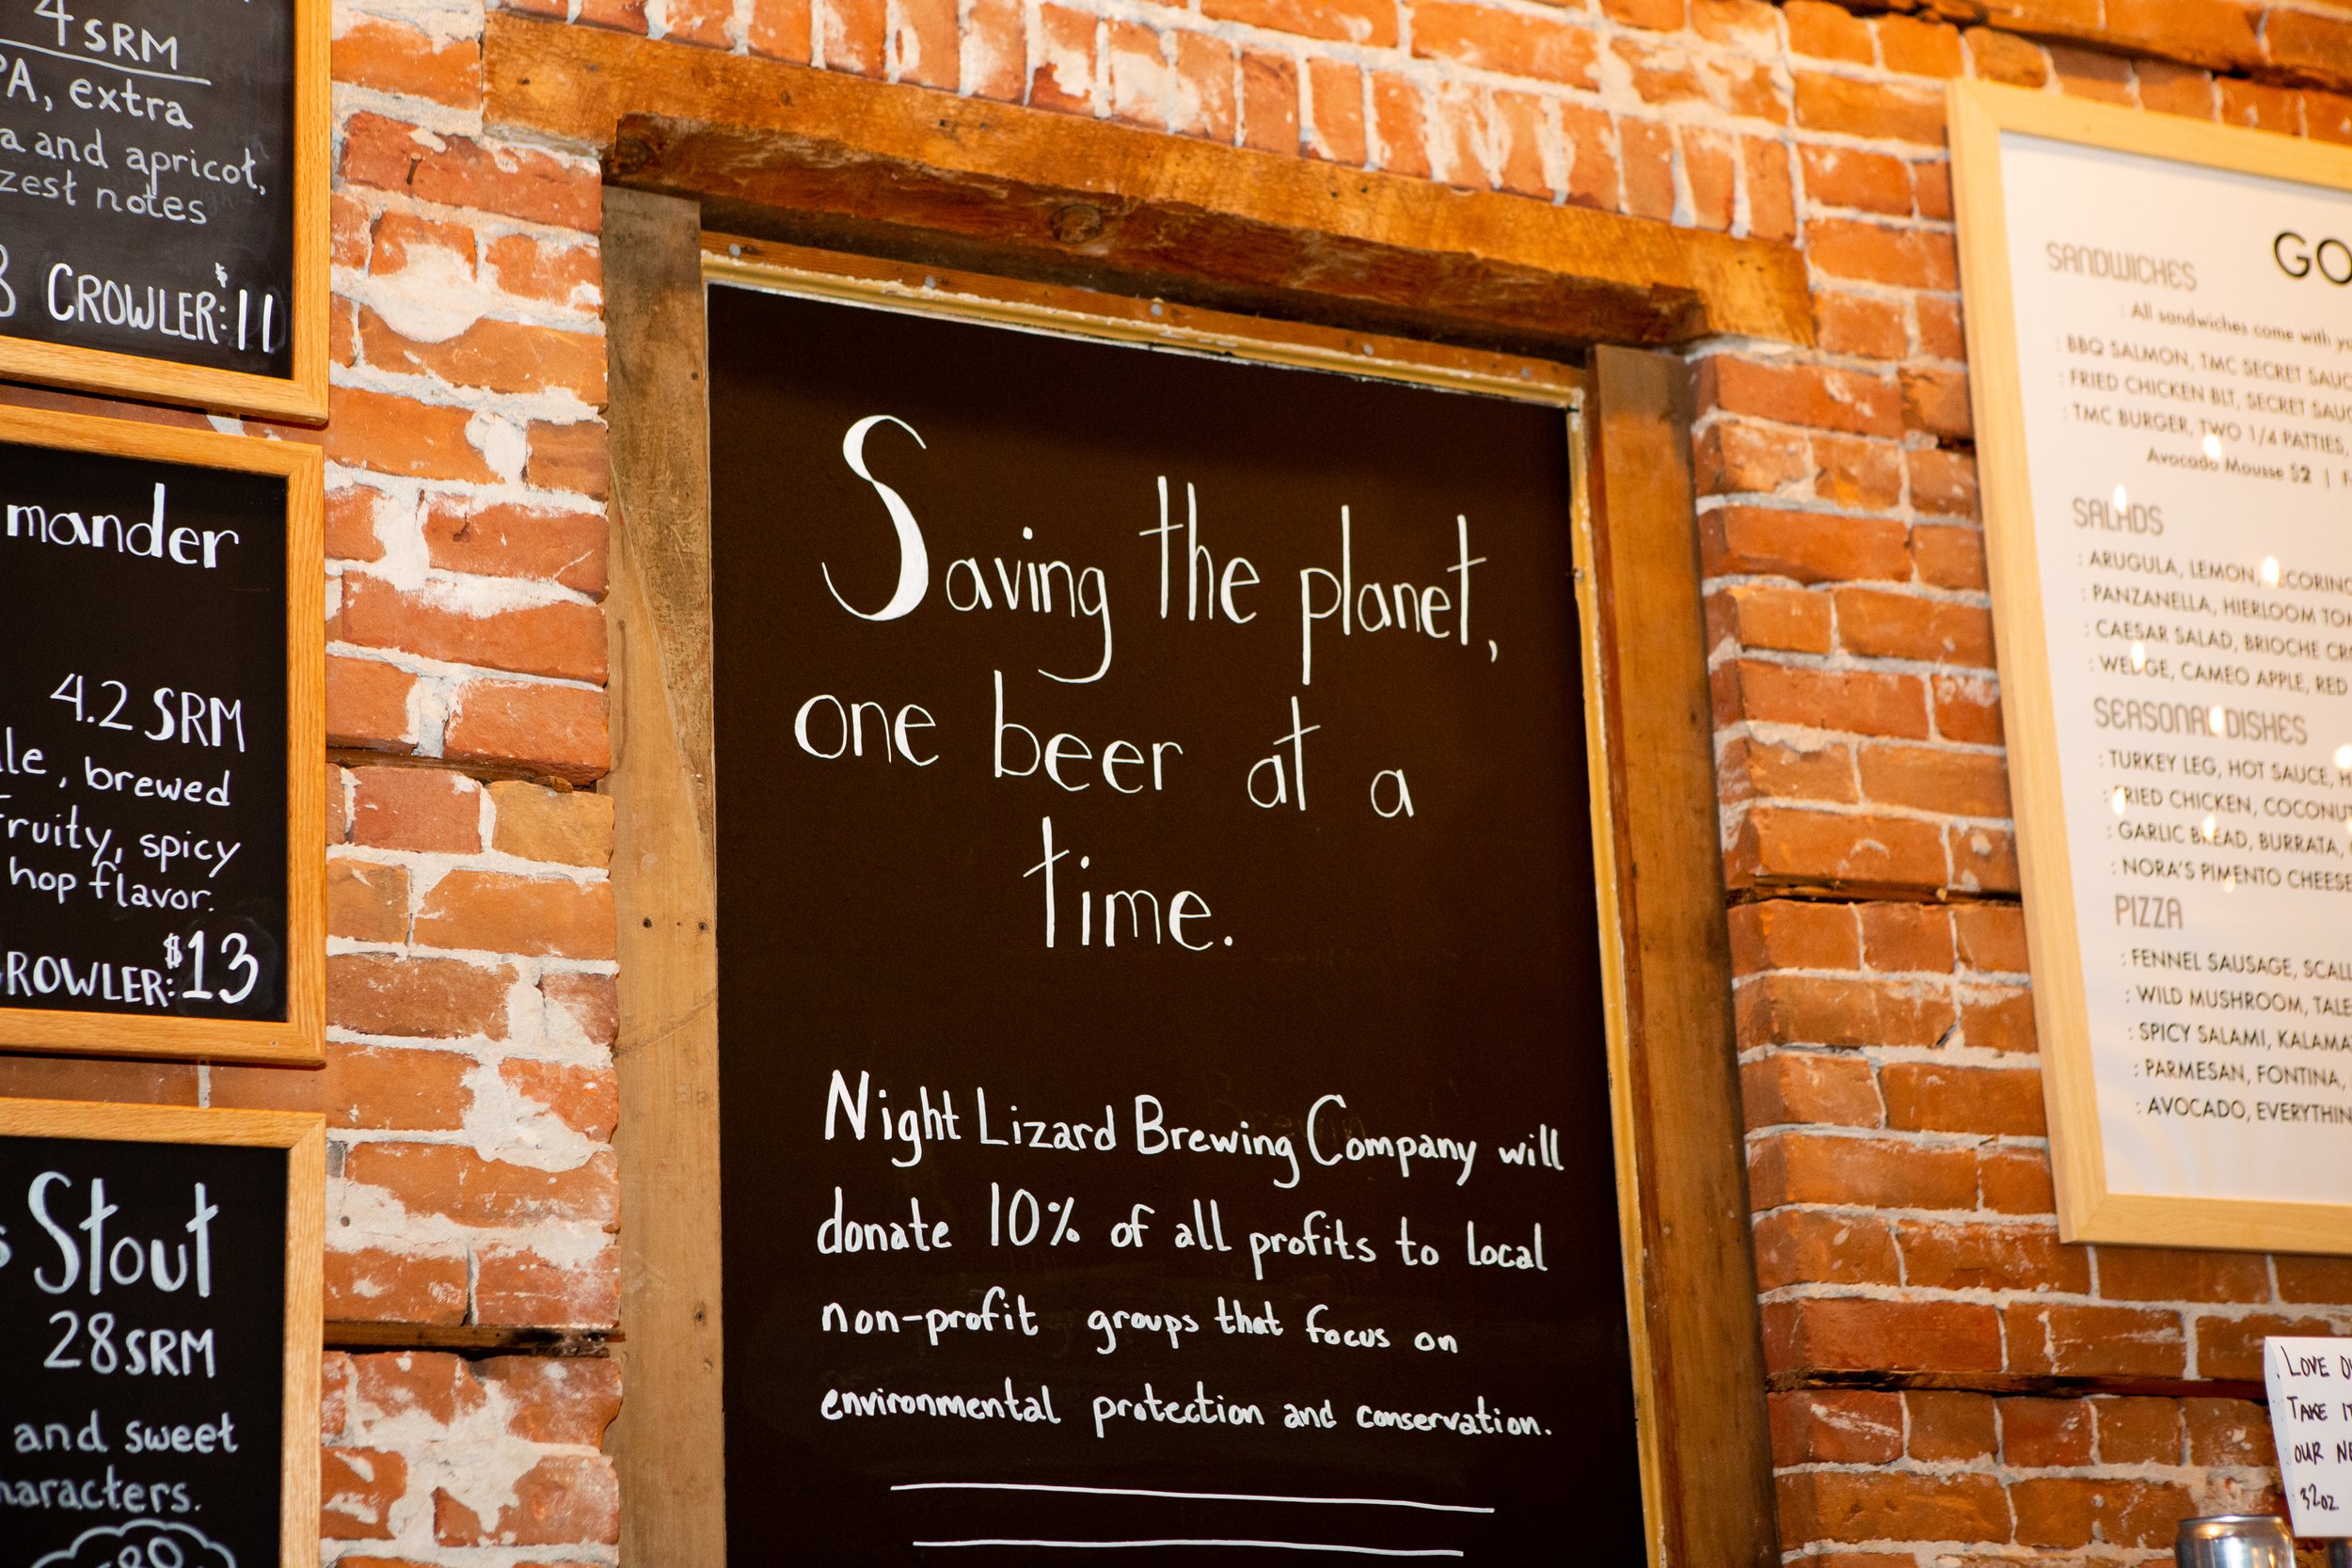 4 SRM
extra
and apricot,
zest notes
CROWLER: $11
4.2 SRM
, brewed
spicy
hop flavor.
$13
Stout
28 SRM
and sweet
Saving the planet,
one beer at a
time.
Night Lizard Brewing Company will
donate 10% of all profits to local
non-profit groups that focus on
environmental protection and conservation.
SANDWICHES
: All sandwiches come with
: BBQ SALMON, TMC SECRET
: FRIED CHICKEN BLT, SECRET
: TMC BURGER, TWO 1/4 PATTIES,
Avocado Mousse $2 |
SALADS
: ARUGULA, LEMON,
: PANZANELLA, HIERLOOM
: CAESAR SALAD, BRIOCHE
: WEDGE, CAMEO APPLE, RED
SEASONAL DISHES
: TURKEY LEG, HOT SAUCE,
: FRIED CHICKEN,
: GARLIC BREAD, BURRATA,
: NORA'S PIMENTO CHEESE
PIZZA
: FENNEL SAUSAGE,
: WILD MUSHROOM,
: SPICY SALAMI,
: PARMESAN, FONTINA,
: AVOCADO,
LOVE
TAKE
OUR
32oz.